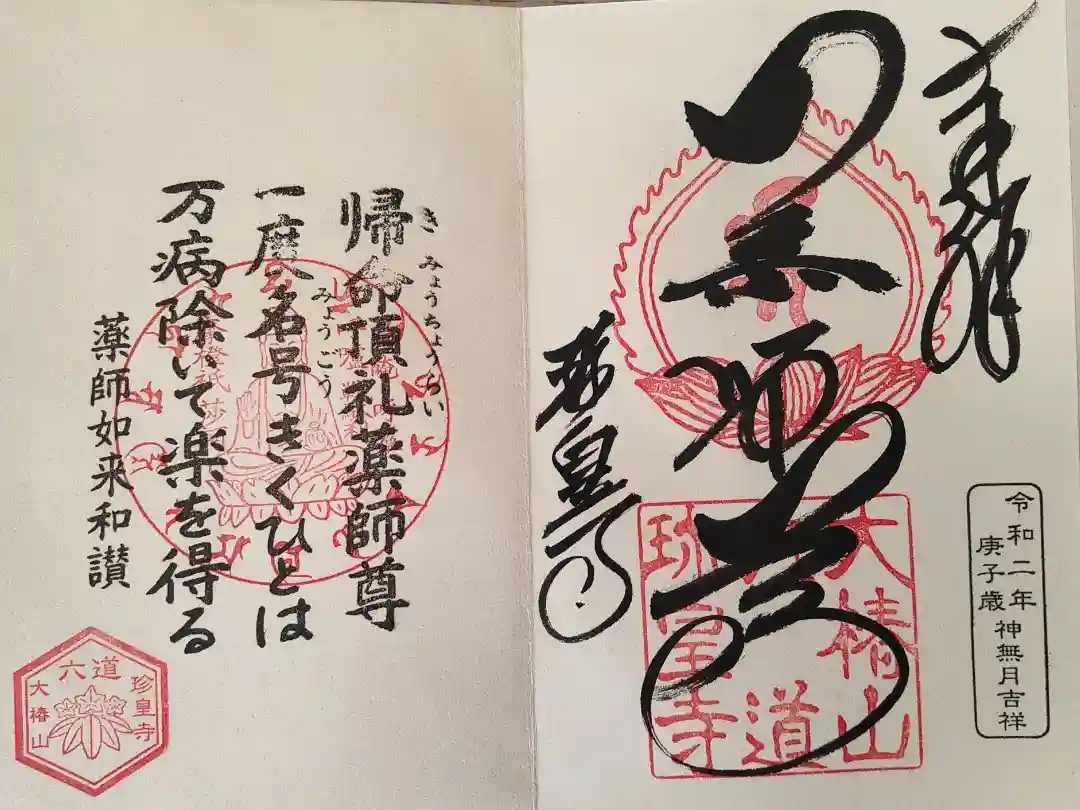 奉拝
薬師堂
珍皇寺
令和二年
庚子歳
神無月吉祥
大椿山
六道
珍皇寺
帰命頂礼薬師尊
きみょうちょうらい
一度名号きくひとは
みょうごう
万病除いて楽を得る
薬師如来和讃
六道
珍皇寺
大椿山